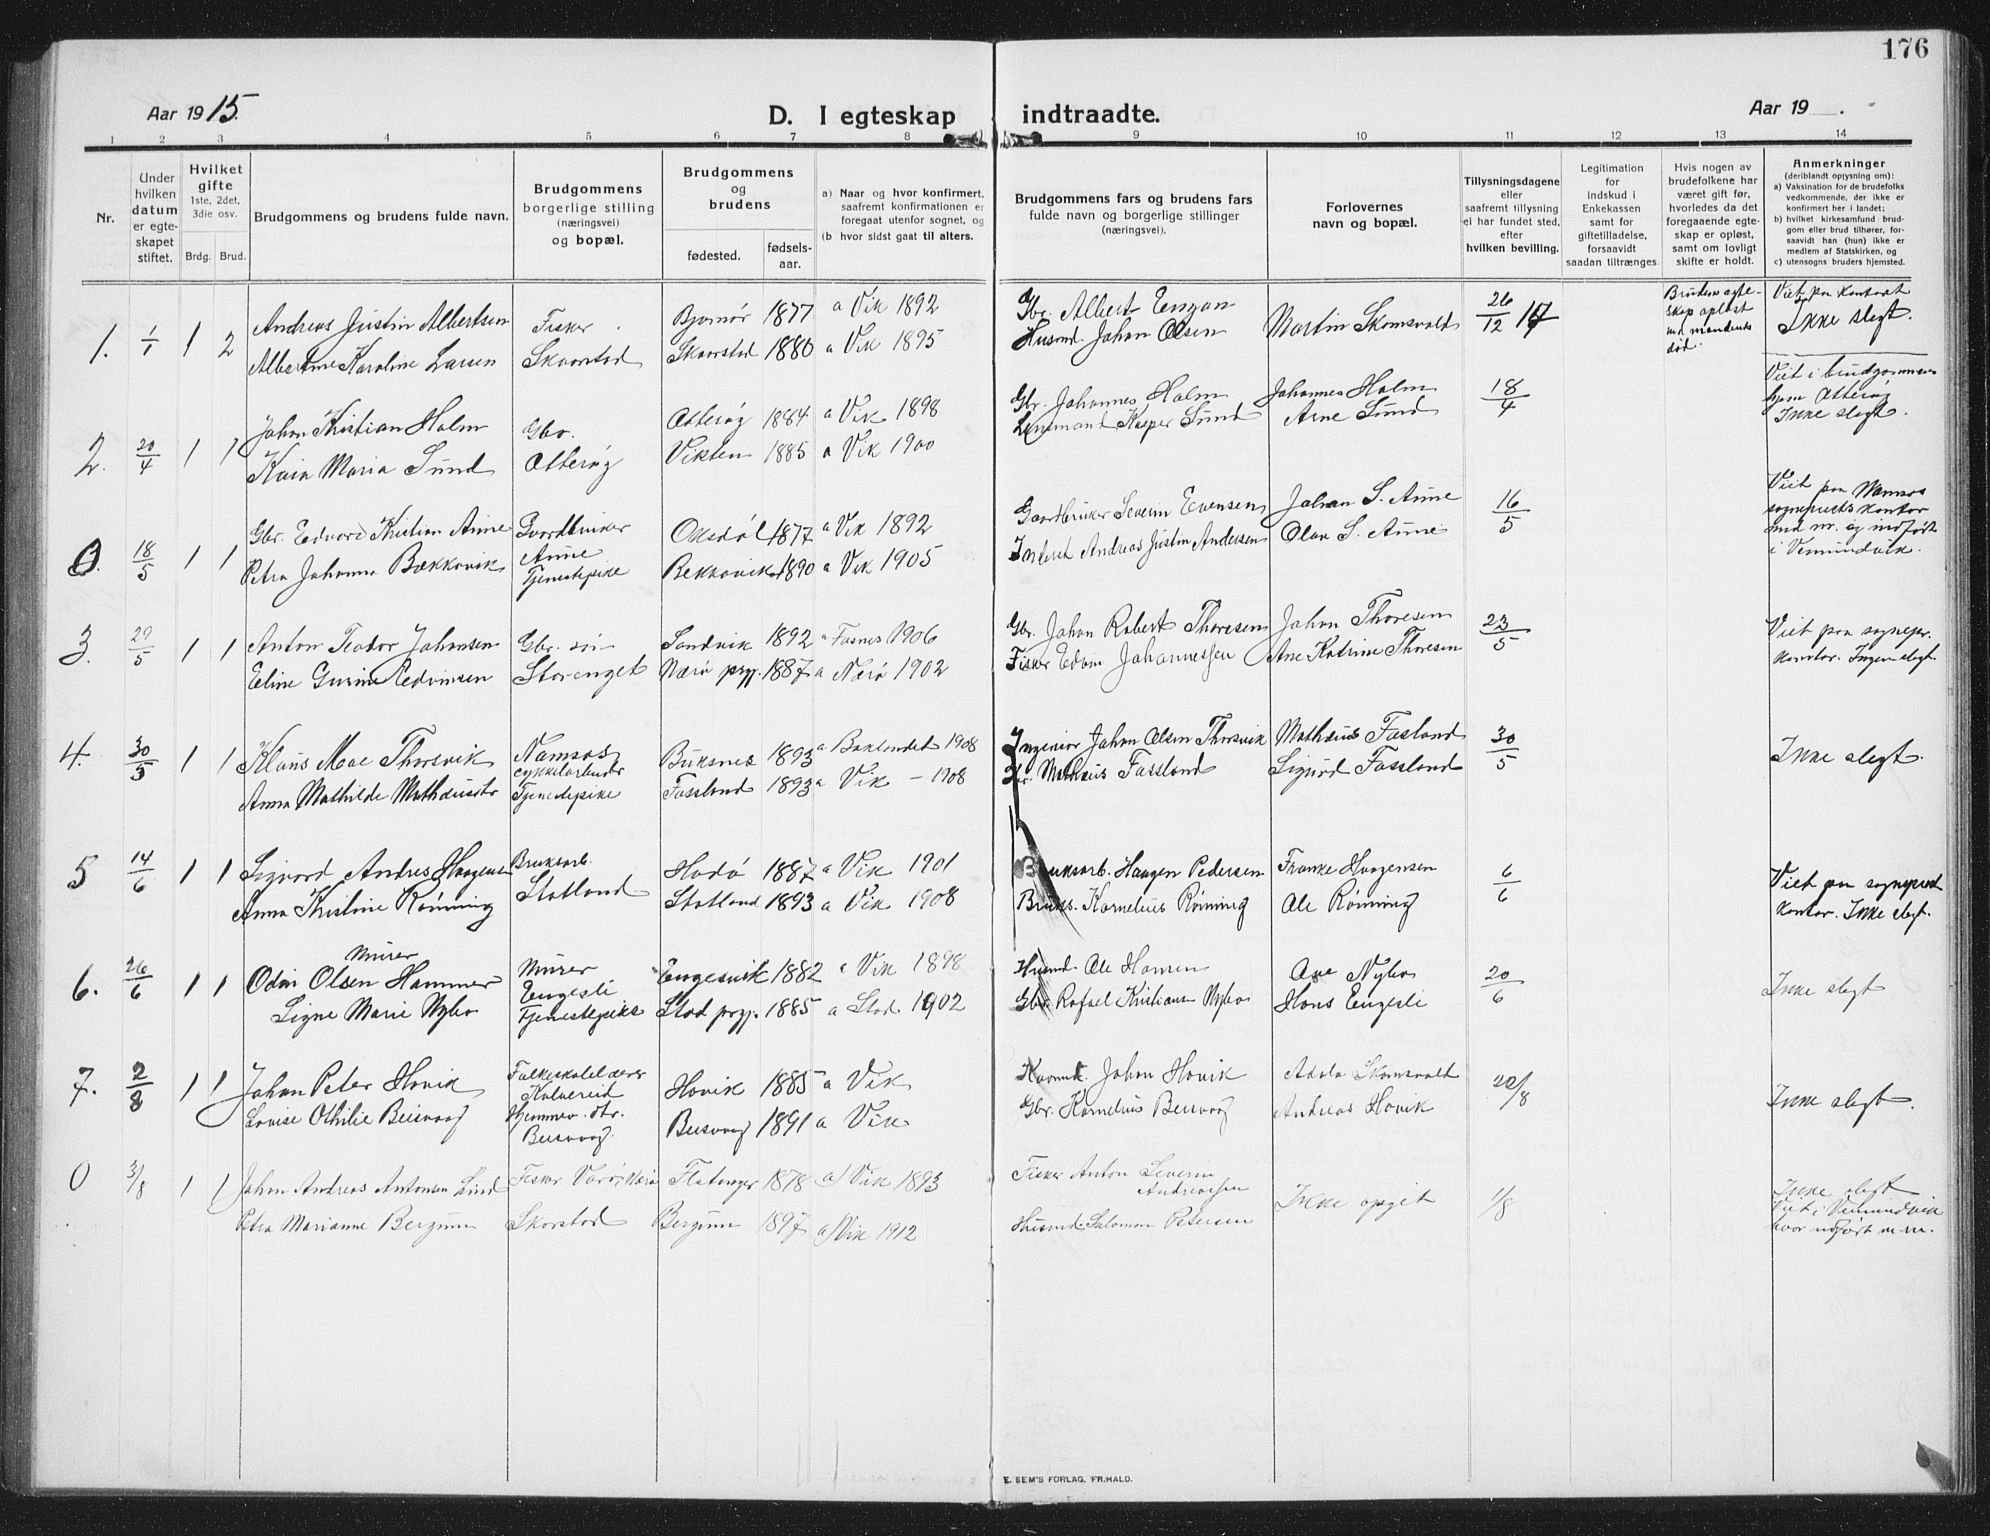 176
Aar 1915.
D. I egteskap indtraadte.
Aar 19 .
1 2 3 4 5 6 7 8 9 10 11 12 13 14
Nr.
Under hvilken datum er egteskapet stiftet.
Hvilket gifte 1ste, 2det, 3die osv.
Brdg. Brud.
Brudgommens og brudens fulde navn.
Brudgommens borgerlige stilling (næringsvei) og bopæl.
Brudgommens og brudens
fødested.
fødselsaar.
a) Naar og hvor konfirmert, saafremt konfirmationen er foregaat utenfor sognet, og
(b hvor sidst gaat til alters.
Brudgommens fars og brudens fars fulde navn og borgerlige stillinger (næringsvei).
Forlovernes navn og bopæl.
Tillysningsdagene eller saafremt tillysning ei har fundet sted, efter hvilken bevilling.
Legitimation for indskud i Enkekassen samt for giftetilladelse, forsaavidt saadan tiltrænges.
Hvis nogen av brudefolkene har været gift før, hvorledes da det foregaaende egteskap er opløst, samt om lovligt skifte er holdt.
Anmerkninger (deriblandt opjysning om):
a) Vaksination for de brudefolks vedkommende, der ikke er konfirmert her i landet;
b) hvilket kirkesamfund brudgom eller brud tilhører, forsaavidt han (hun) ikke er medlem af Statskirken, og
c) utensogns bruders hjemsted.
1. 1/1 1 2 Andreas Justin Albertsen Fisker Bjørnør 1877 a Vik 1892 Gbr. Albert Enzan Martin Skomsvold 26/12 14 Brudens egteskap opløst ved mandens død. Viet paa kontoret Ikke slegt.
Albertine Karoline Larsen Skorstad Skorstad 1880 a Vik 1895 Husmd. Johan Olsen
2. 20/4 1 1 Johan Kristian Holm Gbr. Otterøy 1884 a Vik 1898 Gbr. Johannes Holm Johannes Holm 18/4 Viet i brudgommens hjem Otterøy Ikke slegt.
Kaia Maria Sund Otterøy Vikten 1885 a Vik 1900 Lensmand Kasper Sund Arne Sund
0. 18/5 1 1 Gbr. Edvard Kristian Aune Gaardbruker Aune Oksdøl 1877 a Vik 1892 Gaardbruker Severin Evensen Johan S. Aune 16/5 Viet paa Namsos sogneprests kontor med nr. og indført i Vemundvik.
Petra Johanna Bækkavik Tjenestepike Bekkavik 1890 a Vik 1905 Inderst Andreas Justin Andersen Olav S. Aune
3. 29/5 1 1 Anton Teodor Johansen Gbr. søn Sandvik 1892 a Fosnes 1906 Gbr. Johan Robert Thoresen Johan Thoresen 23/5 Viet paa sognepr. kontor. Ingen slegt
Eline Gurine Edvinsen Storenget Nærø prgj. 1887 a Nærø 1902 Fisker Edvin Johannessen Ane Katrine Thoresen
4. 30/5 1 1 Klaus Moe Thorsvik Namsos cykkelarbeider Buksnes 1893 a Baklandet 1908 Ingeniør Johan Olsen Thorsvik Mathæus Fasland 30/5 Ikke slegt.
Anna Mathilde Mathæusdtr Tjenestepike Fassland 1893 a Vik - 1908 Gbr. Mathæus Fassland Sigurd Fassland
5 14/6 1 1 Sigvard Andreas Haagensen Bruksarb. Hodø 1887 a Vik 1901 Bruksarb. Haagen Pedersen Franke Haagensen 6/6 Viet paa sogneprest kontor. Ikke slegt.
Anna Kristine Rønning Statland Statland 1893 a Vik 1908 Bruks. Kornelius Rønning Ole Rønning
6. 26/6 1 1 Murer Odin Olsen Hammer Murer Engesli Engesvik 1882 a Vik 1898 Husmd. Ole Hansen Ove Nybo 20/6 Ikke slegt
Signe Marie Nybo Tjenestepike Stod prgj. 1885 a Stod 1902 Gbr. Rafael Kristiansen Nybo Hans Engesli
7. 2/8 1 1 Johan Peter Hovik Folkeskolelærer Kalvereid Hovik 1885 a Vik Kaarmd. Johan Hovik Adolo Skomsvold 20/8 Ikke slegt.
Lovise Othilie Beisvaag Hjemmev. dtr. Beisvaag Beisvaag 1891 a Vik Gbr. Kornelius Beisvaag Andreas Hovik
0 3/8 1 1 Johan Andreas Antonsen Lind Fisker Varø, Nærø Flatanger 1878 a) Vik 1893 Fisker Anton Severin Andreassen Ikke opgit 1/8 Ikke slegt Viet i Vemundvik hvor indført m nr.
Petra Marianne Bergum Skorstad Bergum 1897 a) Vik 1912 Husmd. Salomon Petersen
E. SEM'S FORLAG, FR.HALD.